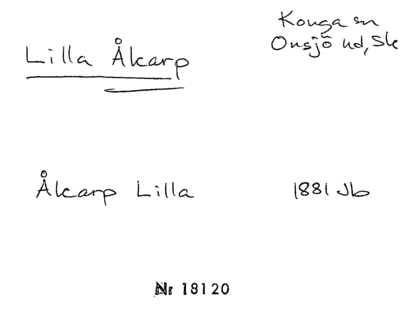 Konga sn
Onsjö hd, Sk
Lilla Åkarp
Åkarp Lilla 1881 Jb
Nr 18120